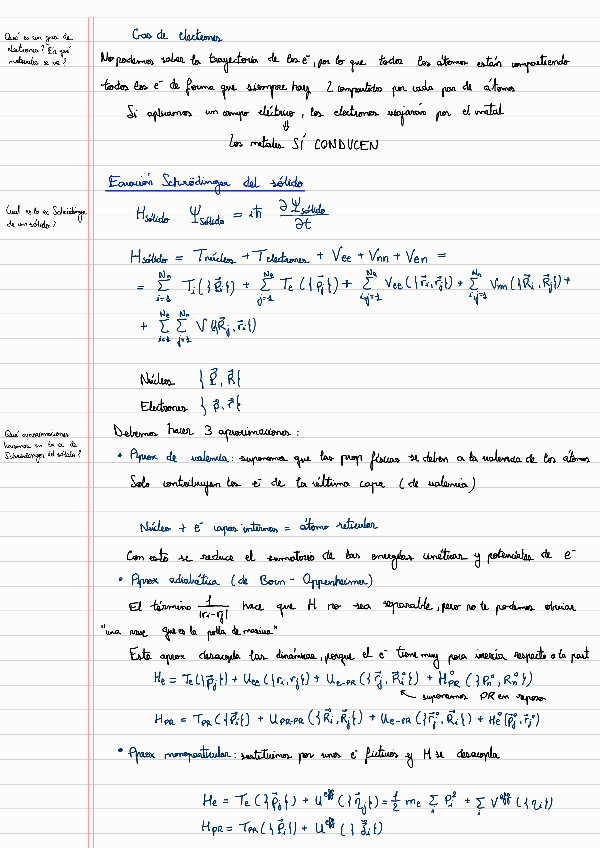 Gas de electrones
Qué es un gas de
electrones? En qué
materiales se va?
No podemos saber la trayectoria de los e⁻, por lo que todos los átomos están compartiendo
todos los e⁻ de forma que siempre hay 2 compartidos por cada par de átomos
Si aplicamos un campo eléctrico, los electrones viajarán por el metal
⇓
Los metales SÍ CONDUCEN
Ecuación Schrödinger del sólido
Cual es la ec Schrödinger
de un sólido?
H_sólido Ψ_sólido = iħ ∂Ψ_sólido/∂t
H_sólido = T_núcleos + T_electrones + Vee + Vnn + Ven =
= Σ_{i=1}^{Nn} Ti({P⃗i}) + Σ_{j=1}^{Ne} Te({p⃗j}) + Σ_{i,j=1}^{Ne} Vee({r⃗i, r⃗j}) + Σ_{i,j=1}^{Nn} Vnn({R⃗i, R⃗j}) +
+ Σ_{i=1}^{Ne} Σ_{j=1}^{Nn} V({R⃗j, r⃗i})
Núcleos {P⃗, R⃗}
Electrones {p⃗, r⃗}
Qué aproximaciones
hacemos en la ec de
Schrödinger del sólido?
Debemos hacer 3 aproximaciones:
• Aprox de valencia: suponemos que las prop físicas se deben a la valencia de los átomos
Solo contribuyen los e⁻ de la última capa (de valencia)
Núcleo + e⁻ capas internas = átomo reticular
Con esto se reduce el sumatorio de las energías cinéticas y potenciales de e⁻
• Aprox adiabática (de Born - Oppenheimer)
El término 1/|ri-rj| hace que H no sea separable, pero no lo podemos obviar
"una nave que es la polla de marina"
Esta aprox desacopla las dinámicas, porque el e⁻ tiene muy poca inercia respecto a la part
He = Te({p⃗j}) + Uee({ri, rj}) + Ue-PR({r⃗j, R⃗i°}) + H°PR({P°n, R°n})
↖ suponemos PR en reposo
HPR = TPR({P⃗i}) + UPR-PR({R⃗i, R⃗j}) + Ue-PR({r⃗j°, R⃗i}) + He°(p⃗j°, r⃗j°)
• Aprox monoparticular: sustituimos por unos e⁻ ficticios y H se desacopla
He = Te({p⃗j}) + U^eff({η⃗j}) = 1/2 me Σ_i Pi² + Σ_i V^eff({ηi})
HPR = TPR({P⃗i}) + U^eff({ξ⃗i})